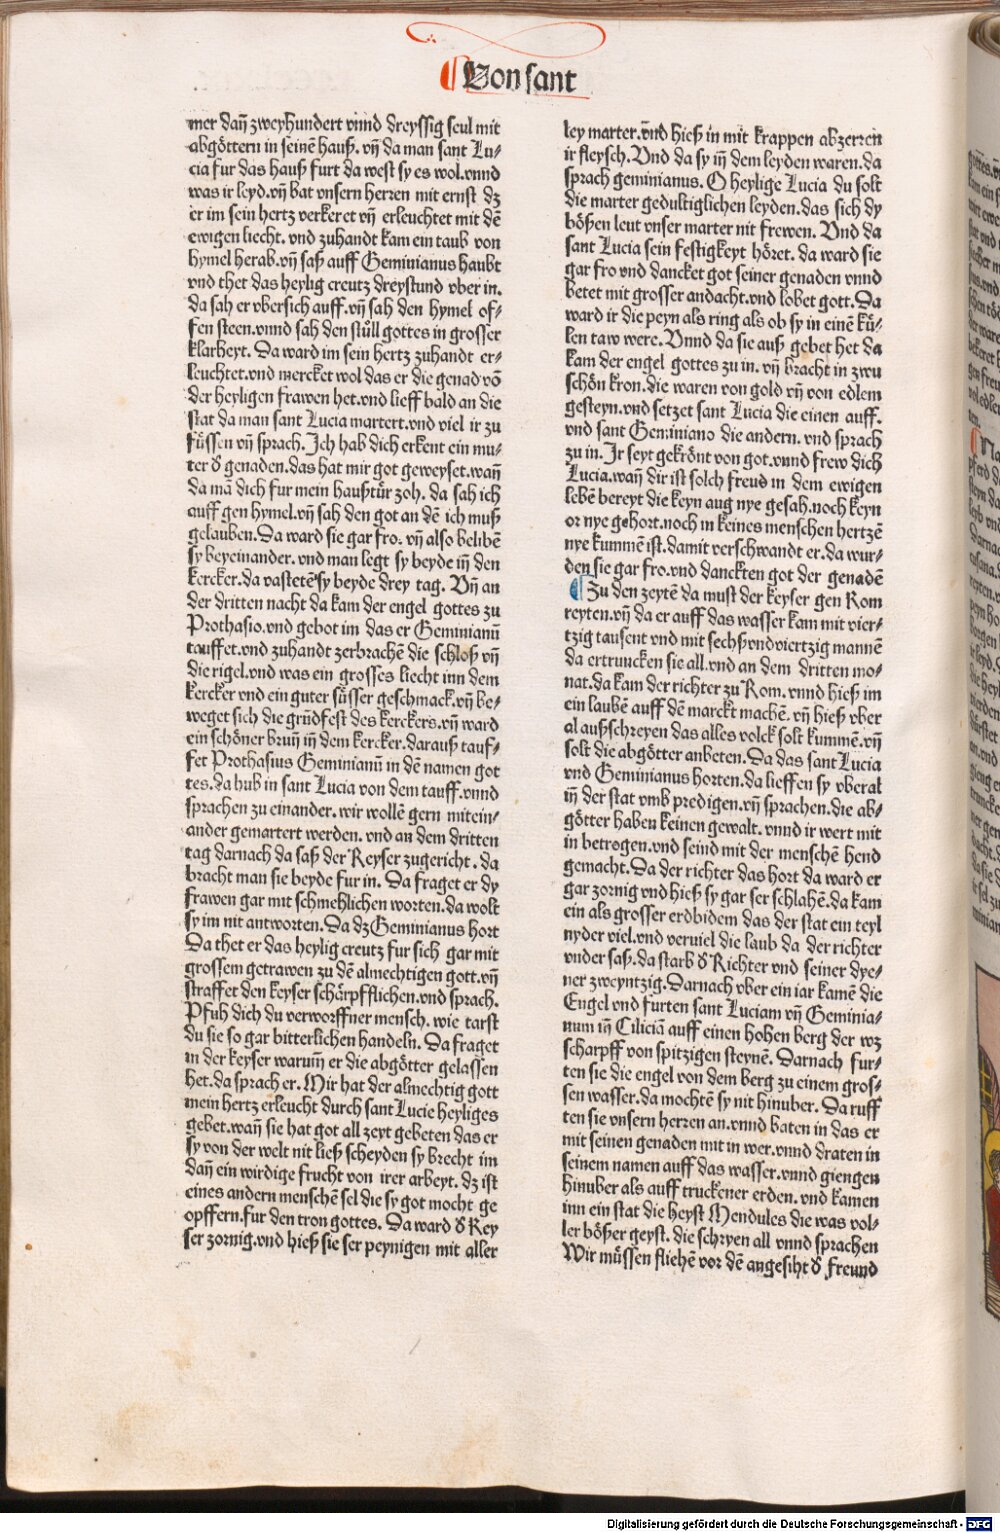 Von sant
mer dañ zweyhundert vnnd dreyssig seul mit
abgöttern in seinē hauß. vñ da man sant Lu-
cia fur das hauß furt da west sy es wol. vnnd
was ir leyd. vñ bat vnsern herren mit ernst dz
er im sein hertz verkeret vñ erleuchtet mit dē
ewigen liecht. vnd zuhandt kam ein taub von
hymel herab. vñ saß auff Geminianus haubt
vnd thet das heylig creutz dreystund vber in.
da sah er vbersich auff. vñ sah den hymel of-
fen steen. vnnd sah den stůll gottes in grosser
klarheyt. Da ward im sein hertz zuhandt er-
leuchtet. vnd mercket wol das er die genad vō
der heyligen frawen het. vnd lieff bald an die
stat da man sant Lucia martert. vnd viel ir zu
füssen vñ sprach. Ich hab dich erkent ein mu-
ter d̕ genaden. das hat mir got geweyset. wañ
da mā dich fur mein haußtür zoh. da sah ich
auff gen hymel. vñ sah den got an dē ich muß
gelauben. Da ward sie gar fro. vñ also belibē
sy beyeinander. vnd man legt sy beyde iñ den
kercker. da vastetē sy beyde drey tag. Vñ an
der dritten nacht da kam der engel gottes zu
Prothasio. vnd gebot im das er Geminianū
tauffet. vnd zuhandt zerbrachē die schloß vñ
die rigel. vnd was ein grosses liecht inn dem
kercker vnd ein guter süsser geschmack. vñ be-
weget sich die grūdfest des kerckers. vñ ward
ein schöner bruñ iñ dem kercker. darauß tauf-
fet Prothasius Geminianū in dē namen got
tes. da hub in sant Lucia von dem tauff. vnnd
sprachen zu einander. wir wollē gern mitein-
ander gemartert werden. vnd an dem dritten
tag darnach da saß der Keyser zugericht. da
bracht man sie beyde fur in. Da fraget er dy
frawen gar mit schmehlichen worten. da wolt
sy im nit antworten. Da dz Geminianus hort
Da thet er das heylig creutz fur sich gar mit
grossem getrawen zu dē almechtigen gott. vñ
straffet den keyser schärpfflichen. vnd sprach.
Pfuh dich du verworffner mensch. wie tarst
du sie so gar bitterlichen handeln. Da fraget
in der keyser warumm er die abgötter gelassen
het. da sprach er. Mir hat der almechtig gott
mein hertz erleucht durch sant Lucie heyliges
gebet. wañ sie hat got all zeyt gebeten das er
sy von der welt nit ließ scheyden sy brecht im
dañ ein wirdige frucht von irer arbeyt. dz ist
eines andern menschē sel die sy got mocht ge
opffern. fur den tron gottes. Da ward d̕ Key
ser zornig. vnd hieß sie ser peynigen mit aller
ley marter. vnd hieß in mit krappen abzerren
ir fleysch. Vnd da sy iñ dem leyden waren. da
sprach geminianus. O heylige Lucia du solt
die marter gedultiglichen leyden. das sich dy
bößen leut vnser marter nit frewen. Vnd da
sant Lucia sein festigkeyt höret. da ward sie
gar fro vnd dancket got seiner genaden vnnd
betet mit grosser andacht. vnd lobet gott. Da
ward ir die peyn als ring als ob sy in einē kü-
len taw were. Vnnd da sie auß gebet het da
kam der engel gottes zu in. vñ bracht in zwu
schön kron. die waren von gold vñ von edlem
gesteyn. vnd setzet sant Lucia die einen auff.
vnd sant Geminiano die andern. vnd sprach
zu in. Ir seyt gekrönt von got. vnnd frew dich
Lucia. wañ dir ist solch freud in dem ewigen
lebē bereyt die keyn aug nye gesah. noch keyn
or nye gehort. noch in keines menschen hertzē
nye kummē ist. damit verschwandt er. da wur-
den sie gar fro. vnd danckten got der genadē
Zu den zeytē da must der keyser gen Rom
reyten. vñ da er auff das wasser kam mit vier-
tzig tausent vnd mit sechßvndviertzig mannē
da ertruncken sie all. vnd an dem dritten mo-
nat. da kam der richter zu Rom. vnnd hieß im
ein laubē auff dē marckt machē. vñ hieß vber
al außschreyen das alles volck solt kummē. vñ
solt die abgötter anbeten. Da das sant Lucia
vnd Geminianus horten. da lieffen sy vberal
iñ der stat vmb predigen. vñ sprachen. die ab-
götter haben keinen gewalt. vnnd ir wert mit
in betrogen. vnd seind mit der menschē hend
gemacht. Da der richter das hort da ward er
gar zornig vnd hieß sy gar ser schlahē. da kam
ein als grosser erdbidem das der stat ein teyl
nyder viel. vnd verviel die laub da der richter
vnder saß. da starb d̕ Richter vnd seiner dye-
ner zweyntzig. Darnach vber ein iar kamē die
Engel vnd furten sant Luciam vñ Geminia-
num iñ Ciliciā auff einen hohen berg der wz
scharpff von spitzigen steynē. Darnach fur-
ten sie die engel von dem berg zu einem gros-
sen wasser. da mochtē sy nit hinuber. Da ruff
ten sie vnsern herren an. vnnd baten in das er
mit seinen genaden mit in wer. vnnd draten in
seinem namen auff das wasser. vnnd giengen
hinuber als auff truckener erden. vnd kamen
inn ein stat die heyst Mendules die was vol-
ler bößer geyst. die schryen all vnnd sprachen
Wir müssen fliehē vor dē angesiht d̕ freund
Digitalisierung gefördert durch die Deutsche Forschungsgemeinschaft - DFG